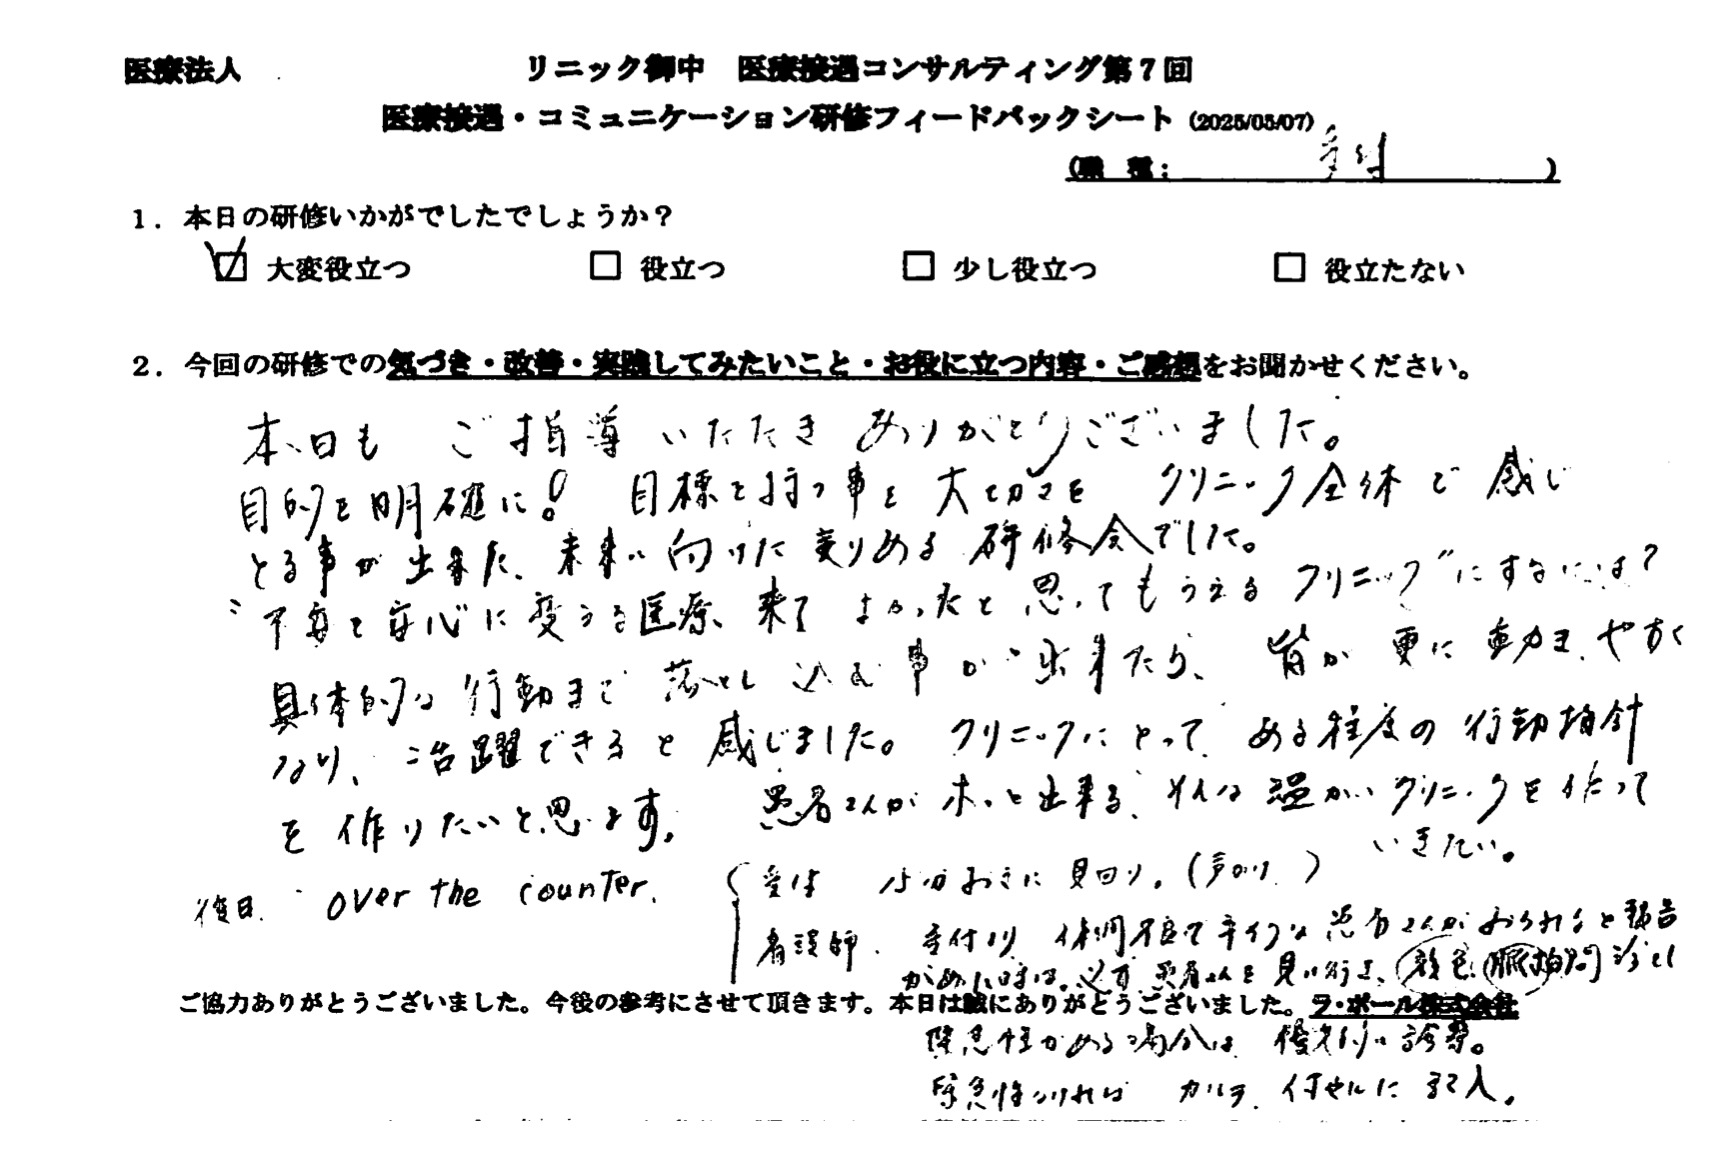 医療法人 リニック御中 医療接遇コンサルティング第7回
医療接遇・コミュニケーション研修フィードバックシート (2025/05/07)
(職 種: )
1. 本日の研修いかがでしたでしょうか?
☑ 大変役立つ □ 役立つ □ 少し役立つ □ 役立たない
2. 今回の研修での気づき・改善・実践してみたいこと・お役に立つ内容・ご感想をお聞かせください。
本日も ご指導 いただき ありがとうございました。
目的を明確に! 目標を持つ事を大切さを クリニック全体で感じ
とる事が出来た、未来に向けた実りある研修会でした。
"不安を安心に変える医療、来てよかったと思ってもらえるクリニック"にするには?
具体的な行動まで落とし込む事が出来たら、皆が更に動きやすく
なり、活躍できると感じました。クリニックにとって、ある程度の行動指針
を作りたいと思います。 患者さんがホッと出来る、そんな温かいクリニックを作って
いきたい。
後日 over the counter.
受付 15分おきに見回り。(声かけ)
看護師. 受付より 体調不良で辛そうな患者さんがおられると報告
があった時は、必ず患者さんを見に行き、顔色、(脈拍
ご協力ありがとうございました。今後の参考にさせて頂きます。本日は誠にありがとうございました。ラ・ポール株式会社
緊急性がある場合は 優先的に診察。
緊急性なければ カルテ、付せんに記入。